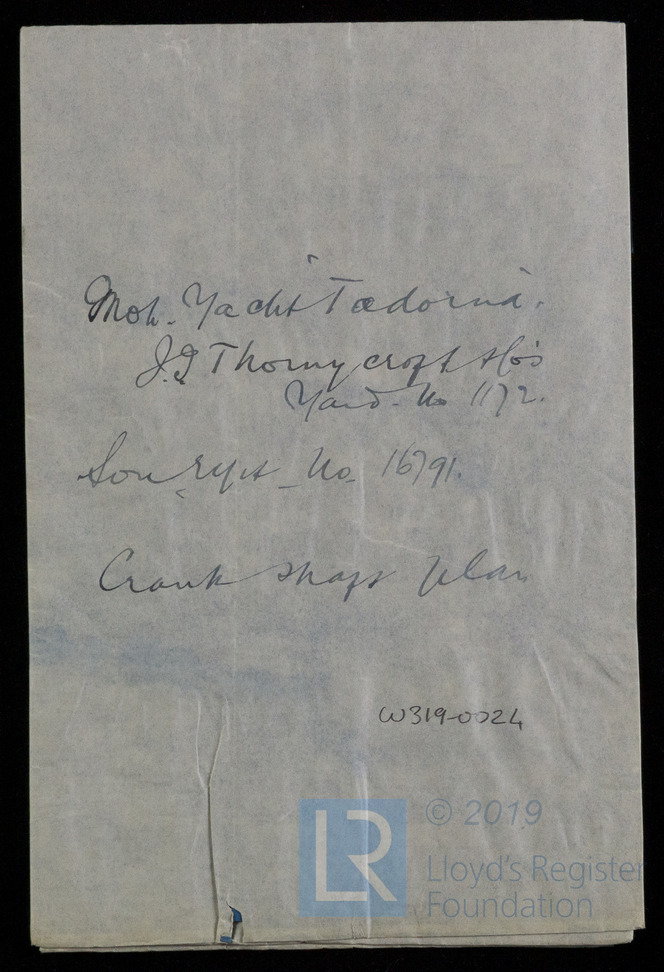 Mot. Yacht "Tadorna".
J.I Thornycroft & Co's
Yard. No 1172.
Sou Rpt. No. 16791.
Crank Shaft Plan
W319-0024
LR
© 2019
Lloyd's Register
Foundation